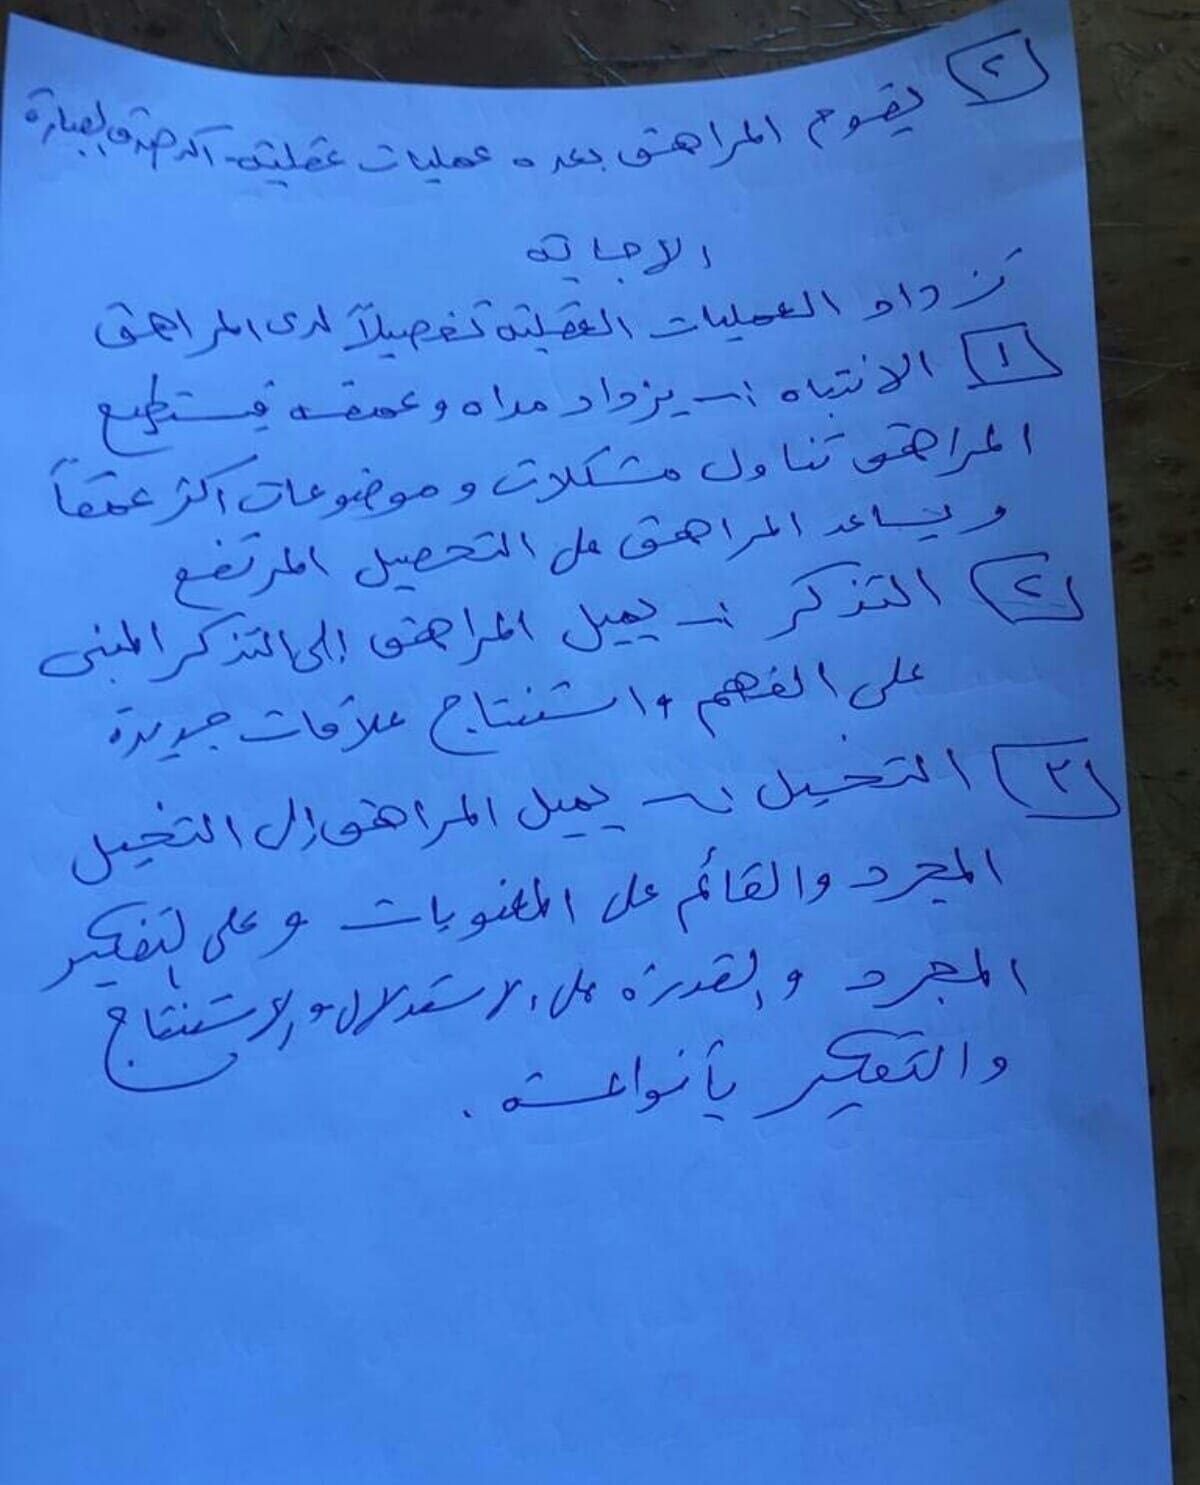 ٢ يقوم المراهق بعدة عمليات عقلية - أكد صدق العبارة
الاجابة
تزداد العمليات العقلية تفصيلاً لدى المراهق
١ الانتباه :- يزداد مداه وعمقه فيستطيع
المراهق تناول مشكلات وموضوعات اكثر عمقاً
ويساعد المراهق على التحصيل المرتفع
٢ التذكر :- يميل المراهق إلى التذكر المبنى
على الفهم واستنتاج علاقات جديدة
٣ التخيل :- يميل المراهق إلى التخيل
المجرد والقائم على المعنويات وعلى التفكير
المجرد والقدرة على الاستدلال والاستنتاج
والتفكير بأنواعة .